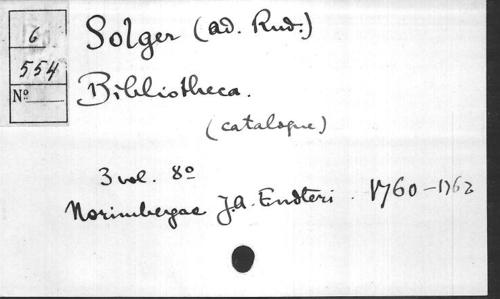 6
554
No
Solger (ad. Rud:)
Bibliotheca.
(catalogue)
3 vol. 8o
Norimbergae J.A. Endteri. 1760-1762